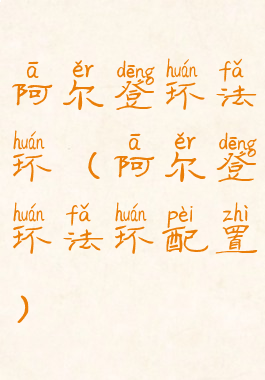 ā ěr dēng huán fǎ
阿尔登环法
huán ā ěr dēng
环（阿尔登
huán fǎ huán pèi zhì
环法环配置
）